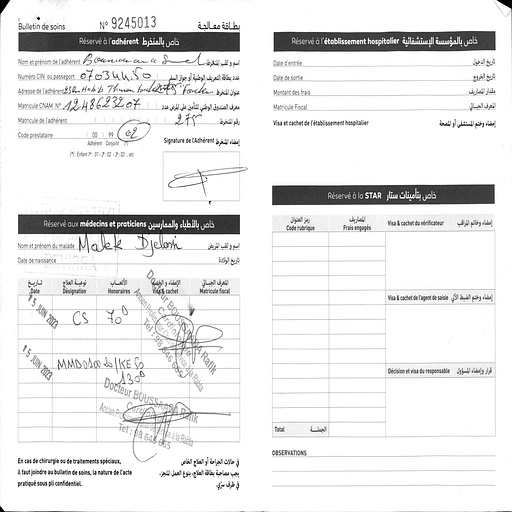 Bulletin de soins N° 9245013 بطاقة معالجة
Réservé à l'adhérent خاص بالمنخرط
Nom et prénom de l'adhérent إسم و لقب المنخرط
Numéro CIN ou passeport 07034450 عدد بطاقة التعريف الوطنية أو جواز السفر
Adresse de l'adhérent عنوان المنخرط
Matricule CNAM N° معرف الصندوق الوطني للتأمين على المرض عدد
Matricule de l'adhérent 275 رقم المنخرط
Code prestataire 00 99 02
Adhérent Conjoint (*)
(*) : Enfant 1er : 01 - 2e : 02 - 3e : 03 ... etc
Signature de l'Adhérent إمضاء المنخرط
Réservé aux médecins et praticiens خاص بالأطباء والممارسين
Nom et prénom du malade Malek إسم و لقب المريض
Date de naissance تاريخ الولادة
تاريخ نوعية العلاج الأتعاب الإمضاء و الختم المعرف الجبائي
Date Désignation Honoraires Visa & cachet Matricule fiscal
15 JUN 2023 CS 70D
15 JUN 2023
130D
Docteur BOUSSAADA Rafik
Tel : 98 646 665
Docteur BOUSSAADA Rafik
En cas de chirurgie ou de traitements spéciaux,
il faut joindre au bulletin de soins, la nature de l'acte
pratiqué sous pli confidentiel.
في حالات الجراحة أو العلاج الخاص
يجب مصاحبة بطاقة العلاج، بنوع العمل المنجز،
في ظرف سري.
Réservé à l'établissement hospitalier خاص بالمؤسسة الإستشفائية
Date d'entrée تاريخ الدخول
Date de sortie تاريخ الخروج
Montant des frais مقدار المصاريف
Matricule Fiscal المعرف الجبائي
Visa et cachet de l'établissement hospitalier إمضاء وختم المستشفى أو المصحة
Réservé à la STAR خاص بتأمينات ستار
رمز العنوان المصاريف
Code rubrique Frais engagés
Visa & cachet du vérificateur إمضاء وخاتم المراقب
Visa & cachet de l'agent de saisie إمضاء وختم الضبط الآلي
Décision et visa du responsable قرار وإمضاء المسؤول
Total الجملة
OBSERVATIONS